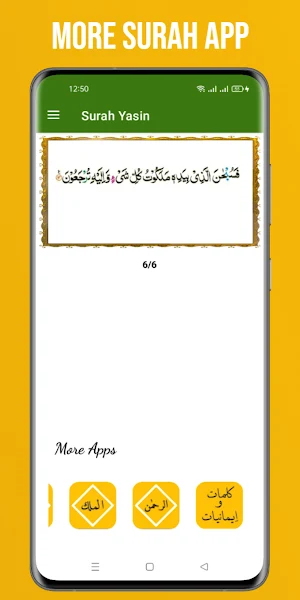 MORE SURAH APP
12:50
Surah Yasin
فَسُبْحٰنَ الَّذِیْ بِیَدِهٖ مَلَكُوْتُ كُلِّ شَیْءٍ وَّاِلَیْهِ تُرْجَعُوْنَ
6/6
More Apps
الملك
الرحمن
كلمات
و
إيمانيات